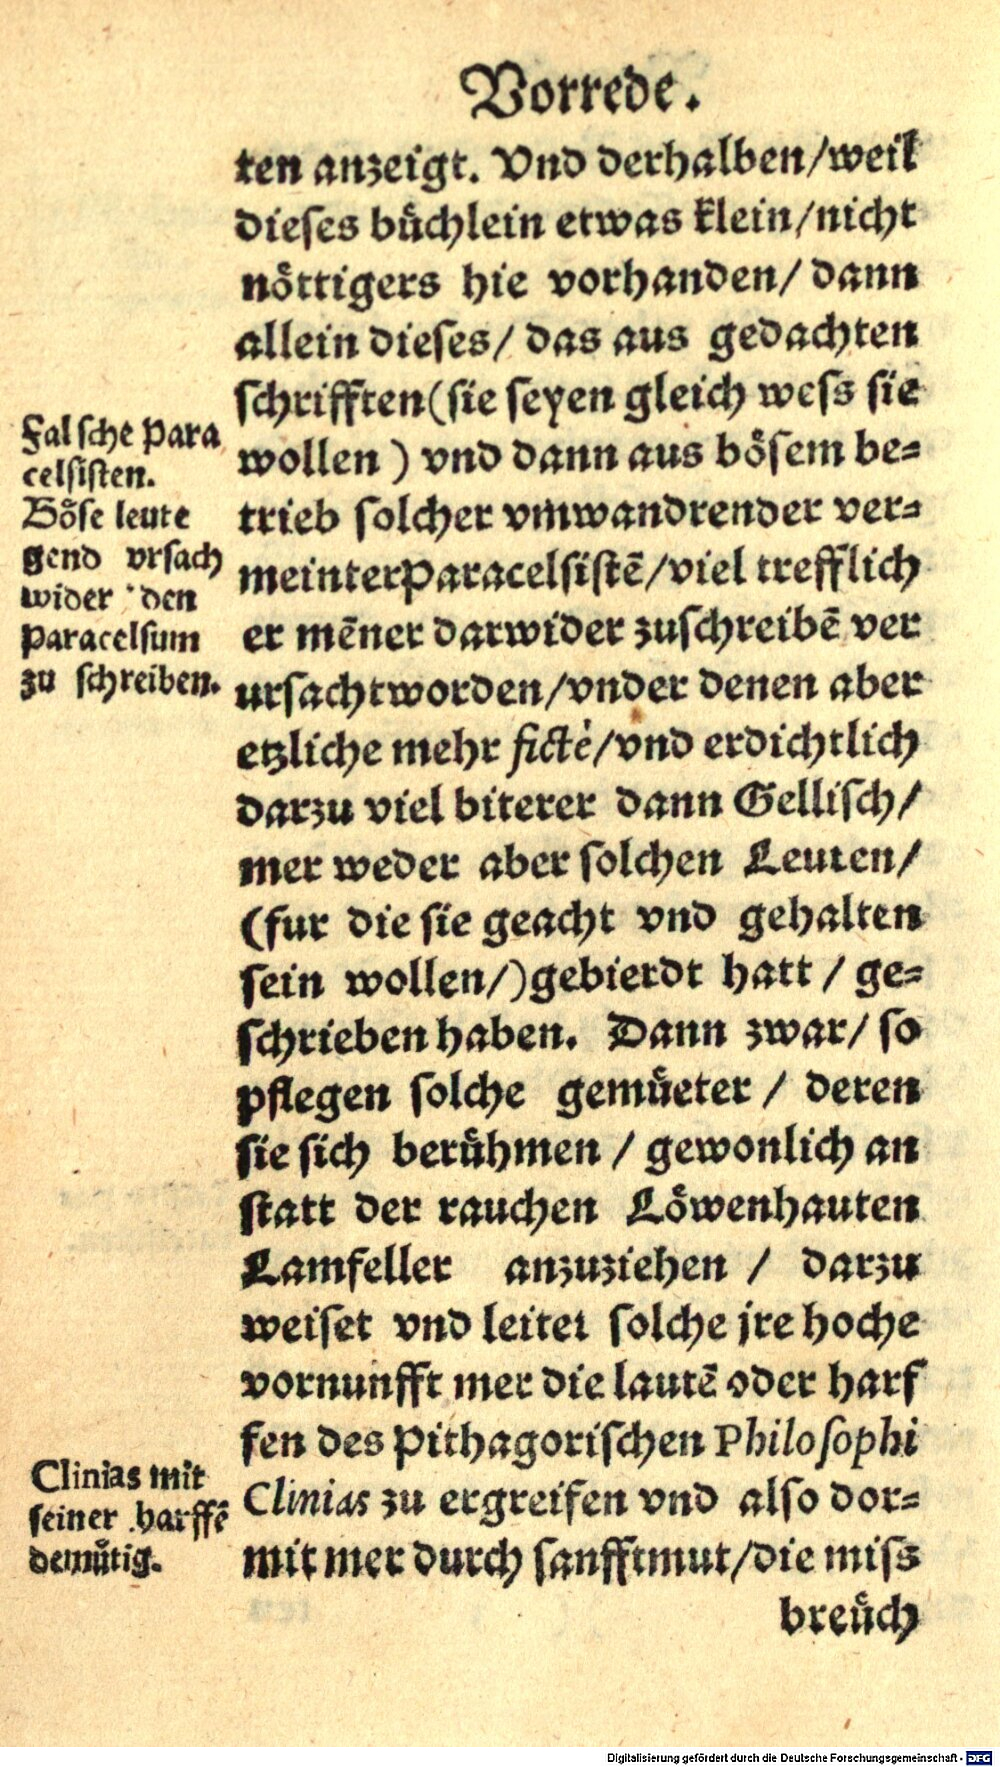 Vorrede.
ten anzeigt. Vnd derhalben/weil
dieses bůchlein etwas klein/nicht
nöttigers hie vorhanden/ dann
allein dieses/ das aus gedachten
schrifften(sie seyen gleich wess sie
wollen ) vnd dann aus bösem be=
trieb solcher vmwandrender ver=
meinter Paracelsistē/viel trefflich
er mēner darwider zuschreibē ver
ursacht worden/vnder denen aber
etzliche mehr fictè/vnd erdichtlich
darzu viel biterer dann Gellisch/
mer weder aber solchen Leuten/
(fur die sie geacht vnd gehalten
sein wollen/)gebierdt hatt / ge=
schrieben haben. Dann zwar/ so
pflegen solche gemůeter / deren
sie sich berůhmen / gewonlich an
statt der rauchen Löwenhauten
Lamfeller anzuziehen / darzu
weiset vnd leitet solche jre hoche
vornunfft mer die lautē oder harf
fen des Pithagorischen Philosophi
Clinias zu ergreifen vnd also dor=
mit mer durch sanfftmut/die miss
breůch
Falsche Para
celsisten.
Böse leute
gend vrsach
wider den
Paracelsum
zu schreiben.
Clinias mit
seiner harffē
demůtig.
Digitalisierung gefördert durch die Deutsche Forschungsgemeinschaft - DFG